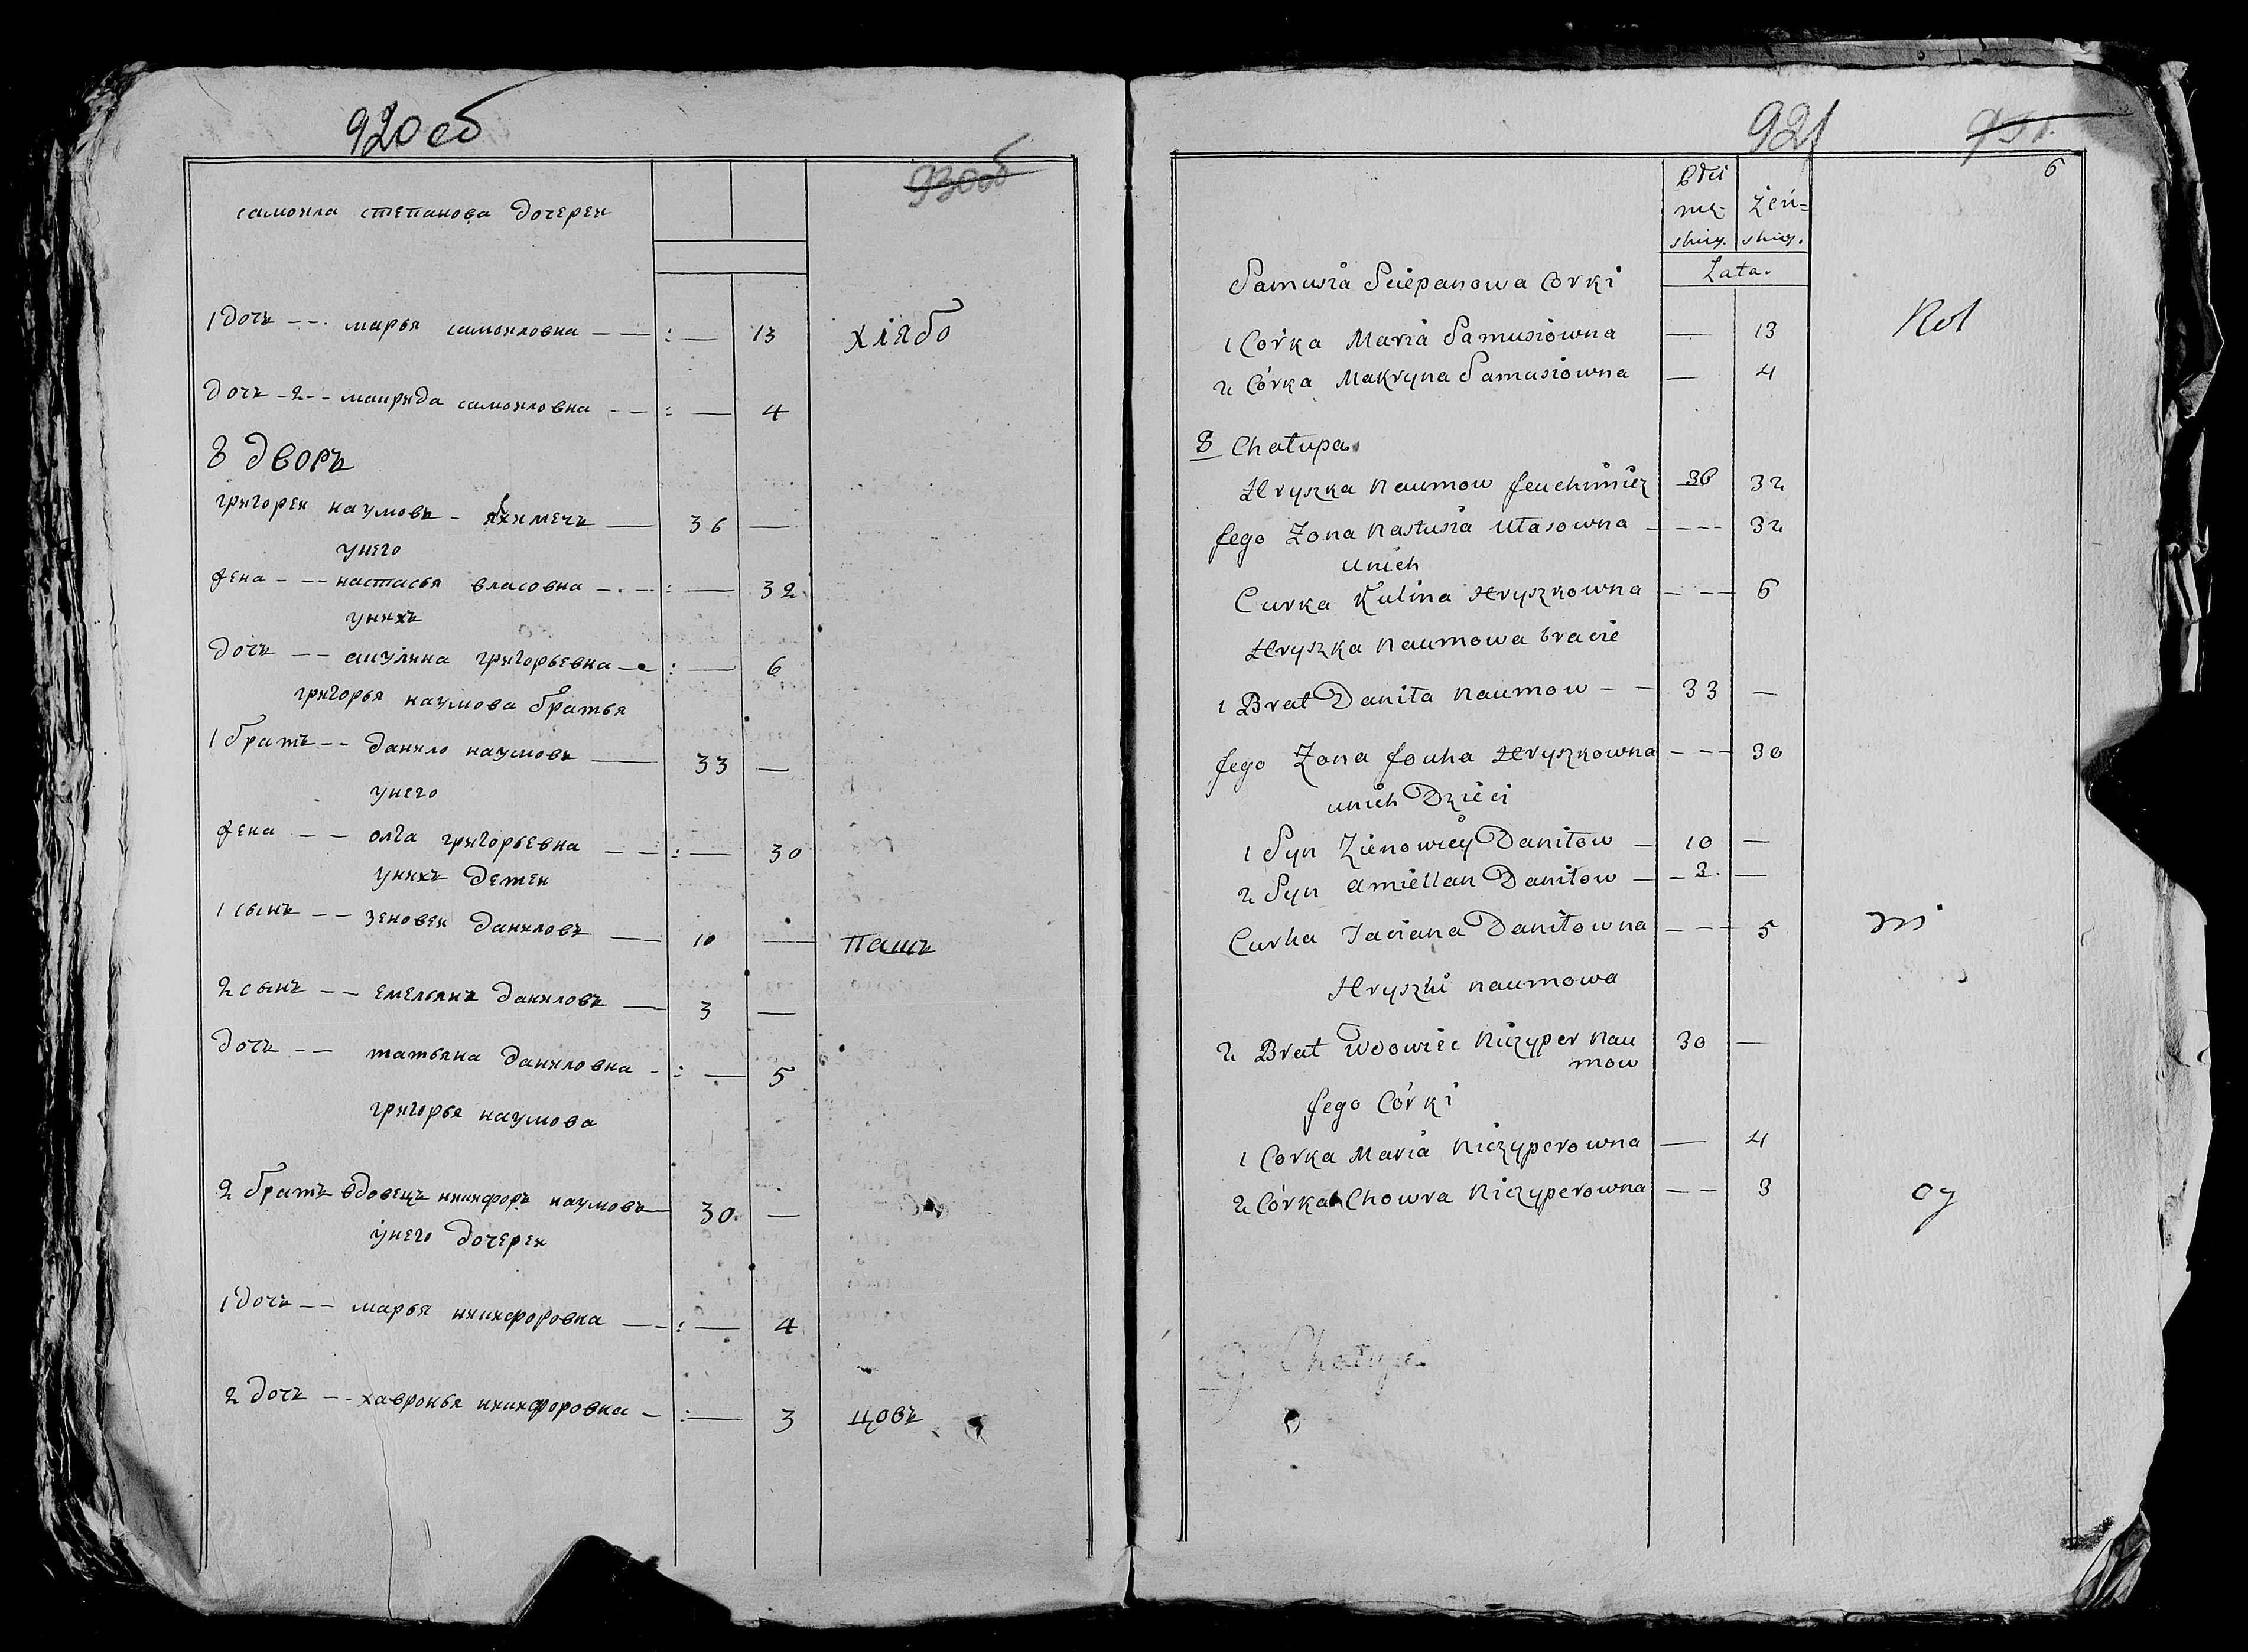 920об
930об
самоила степанова дочереи
1 дочь -- марья самоиловна — : — 13 хлѣбо
дочь - 2 -- макрида самоиловна -- : — 4
8 дворъ
григореи наумовъ - — 36 —
унего
жена --- настасья власовна --- : — 32
унихъ
дочь -- акулина григорьевна — : — 6
григорья наумова братья
1 братъ -- данило наумовъ — 33 —
унего
жена -- олга григорьевна -- : — 30
унихъ детеи
1 сынъ -- зеновеи даниловъ — 10 — пашъ
2 сынъ -- емельянъ даниловъ — 3 —
дочь -- татьяна даниловна - : — 5
григорья наумова
2 братъ вдовецъ никифоръ наумовъ — 30 —
унего дочереи
1 дочь -- марья никифоровна — : — 4
2 дочь -- хавронья никифоровна - : — 3 цовъ
921
931.
6
płci
mę- żeń=
skiey. skiey.
Lata.
Samusia Sciepanowa Corki
1 Corka Maria Samusiowna — 13 Rol
2 Córka Makryna Samusiowna — 4
8 Chałupa
Hryszka Naumow Jeuchimicz 36 32
Jego Zona Nastusia Ułasowna ---- 32
unich
Curka Kulina Hryszkowna --- 6
Hryszka Naumowa bracie
1 Brat Daniła Naumow -- 33 —
Jego Zona Jouha Hryszkowna --- 30
unich Dzieci
1 Syn Zienowiey Daniłow — 10 —
2 Syn Amiellan Daniłow — 3. —
Curka Taciana Daniłowna --- 5 ni
Hryszki Naumowa
2 Brat Wdowiec Niczyper Nau 30 —
mow
Jego Córki
1 Corka Maria Niczyperowna — 4
2 Córka Chowra Niczyperowna -- 3 cy
9 Chałupa